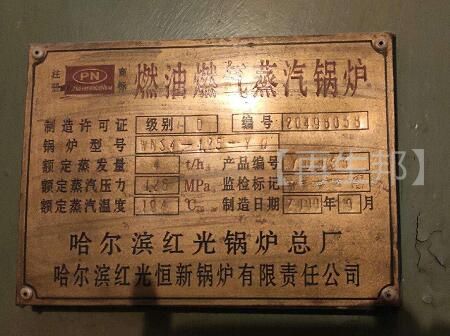 注册 PN 商标
燃油燃气蒸汽锅炉
制造许可证 级别 D 编号
锅炉型号 WNS4-1.25-Y.Q
额定蒸发量 4 t/h 产品编号
额定蒸汽压力 1.25 MPa 监检标记
额定蒸汽温度 194 ℃ 制造日期 年 9 月
哈尔滨红光锅炉总厂
哈尔滨红光恒新锅炉有限责任公司